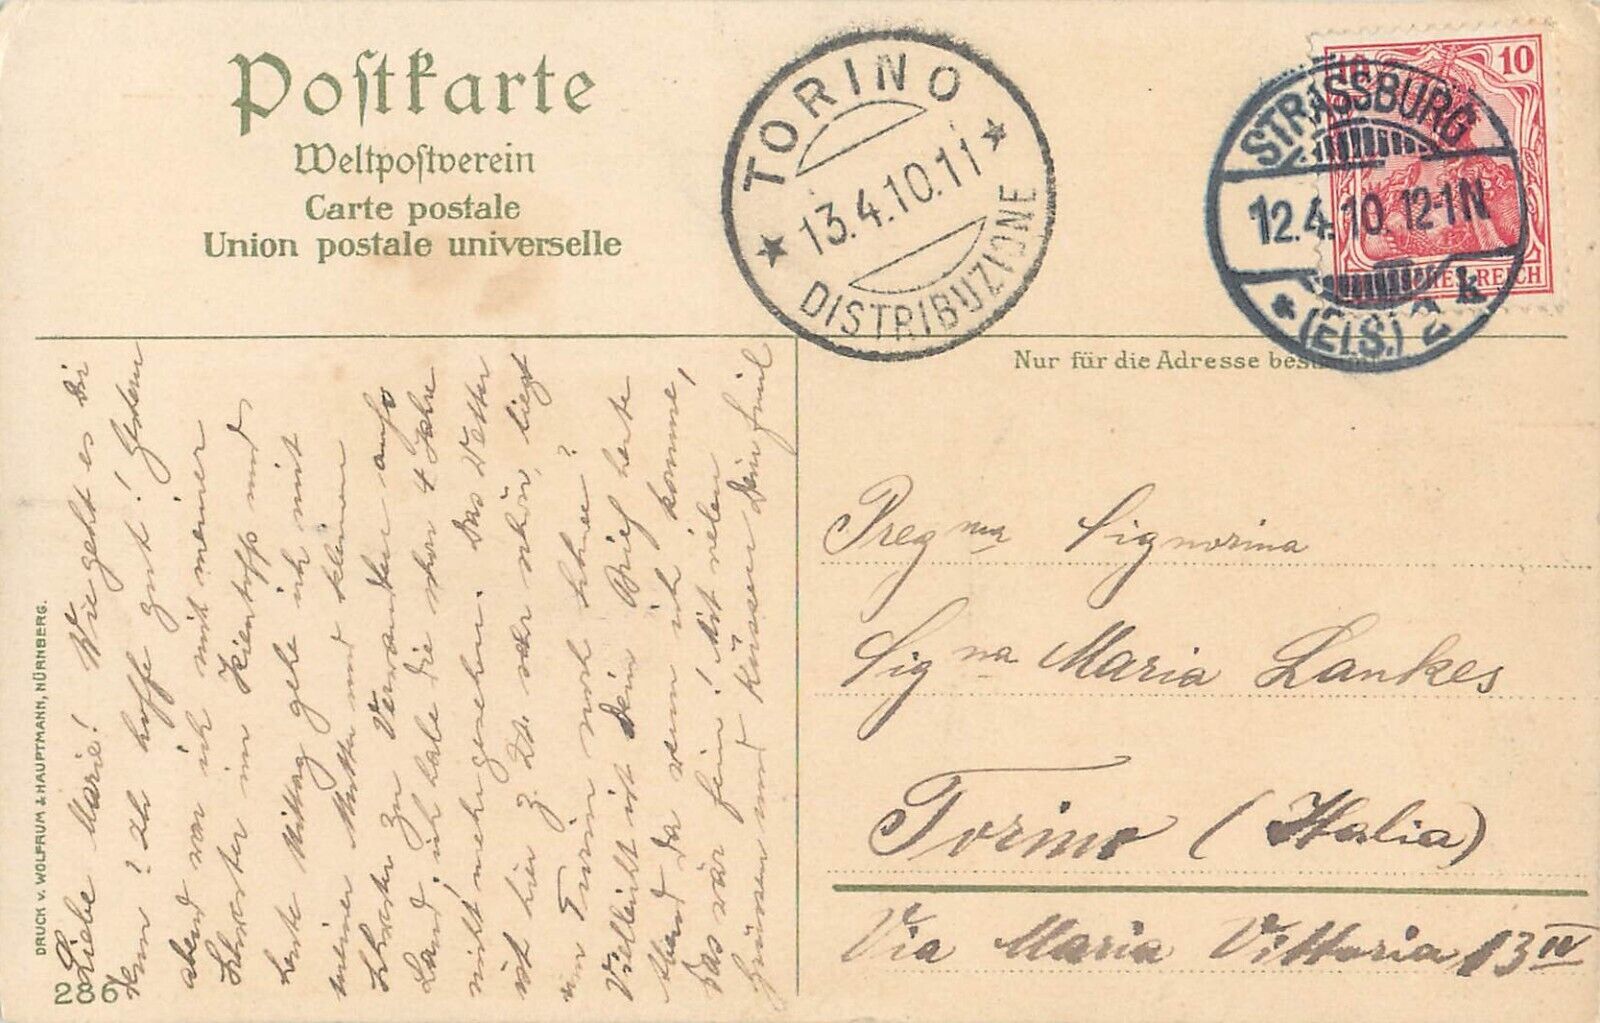 Postkarte
Weltpostverein
Carte postale
Union postale universelle
TORINO
13.4.10.11
DISTRIBUZIONE
10 10
REICH
STRASSBURG
12.4.10.12-1N
(ELS.) 2 k
Nur für die Adresse
Preg ma Signorina
Sig na Maria Lankes
Torino (Italia)
Via Maria Vittoria 13 IV
Liebe Marie! Wie geht es Di
denn? Ich hoffe gut! Gestern
abend war ich mit meiner
Schwester im Kientopp und
heute Mittag gehe ich mit
meiner Mutter und kleinen
Schwester zu Verwandten aufs
Land, ich habe die schon 4 Jahre
nicht mehr gesehen. Das Wetter
ist hier z. Zt. sehr schön, liegt
in Turin noch Schnee?
Vielleicht ist Dein Brief heute
Abend da wenn ich komme,
das wär fein! Mit vielen
Grüssen und Küssen Dein
DRUCK v. WOLFRUM & HAUPTMANN, NÜRNBERG.
286